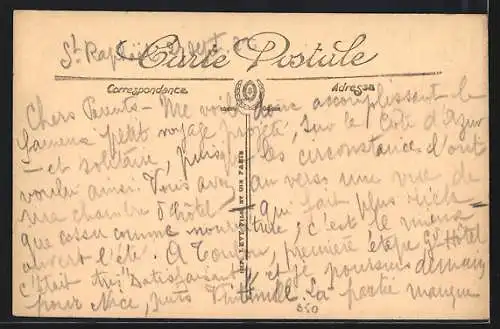 St Raphaël
Carte Postale
Correspondance Adresse
Chers Parents - Me voici donc accomplissant le
fameux petit voyage projeté, sur la Côte d'Azur
- et solitaire, puisque les circonstances l'ont
voulu ainsi. Vous avez au verso une vue de
ma chambre d'hôtel - qui fait plus riche
que cossu comme nourriture; c'est le mieux
ouvert l'été. A Toulon, première étape Gd Hôtel
c'était très satisfaisant et je poursuis demain
pour Nice, puis Vintimille. La partie manque
IMP. LEVY FILS ET CIE PARIS